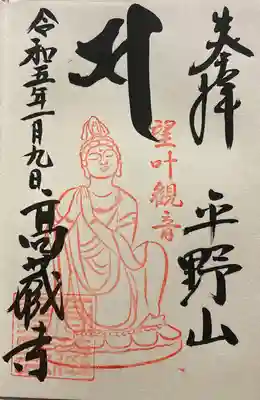 奉拝
平野山
望叶観音
高蔵寺
令和五年一月九日